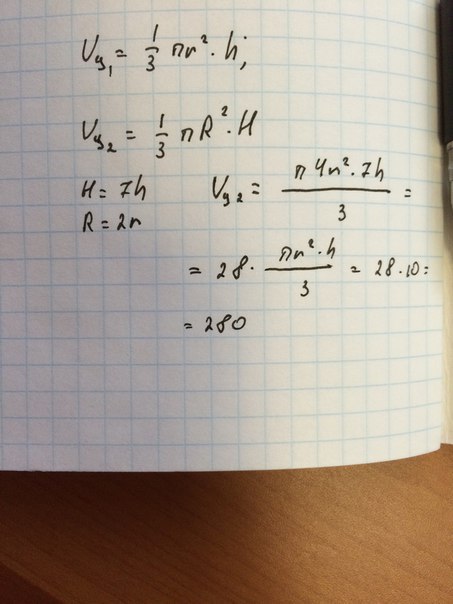 Vy₁ = 1/3 πr² · h;
Vy₂ = 1/3 πR² · H
H = 7h Vy₂ = π4r² · 7h / 3 =
R = 2r
= 28 · πr² · h / 3 = 28 · 10 =
= 280